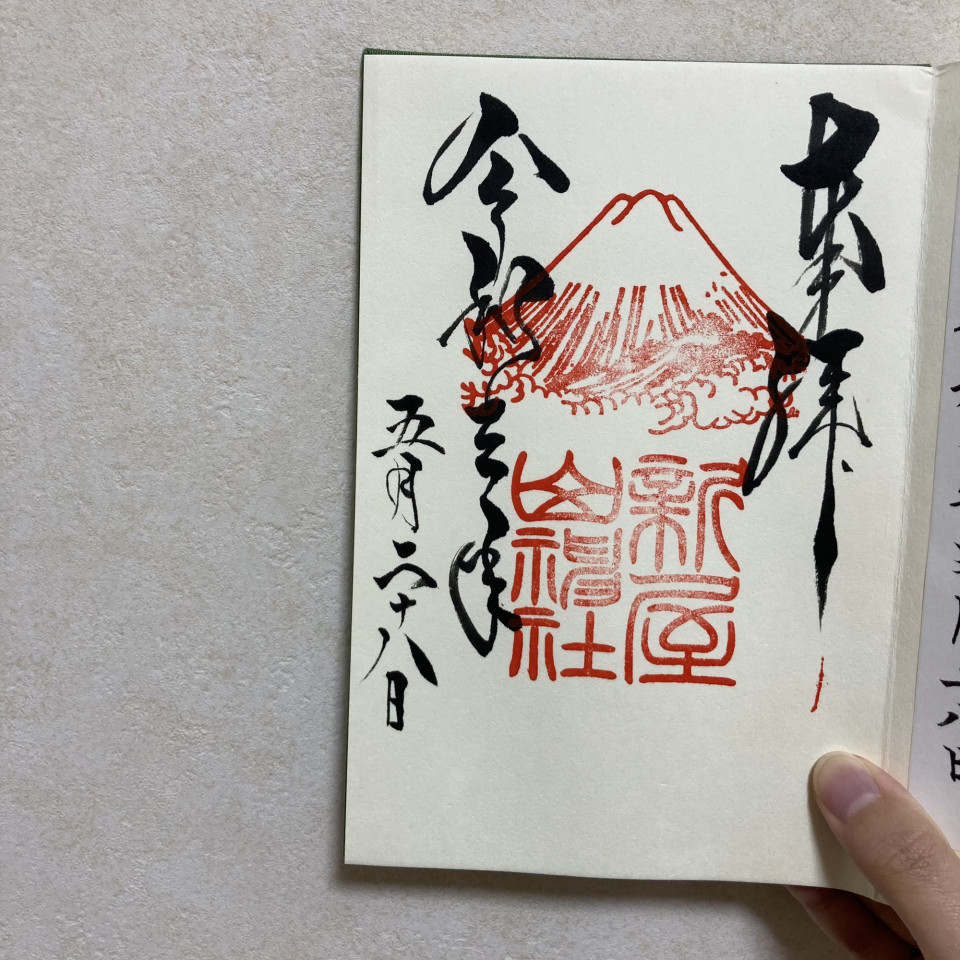 奉拝
新屋
山神社
令和三年
五月二十八日